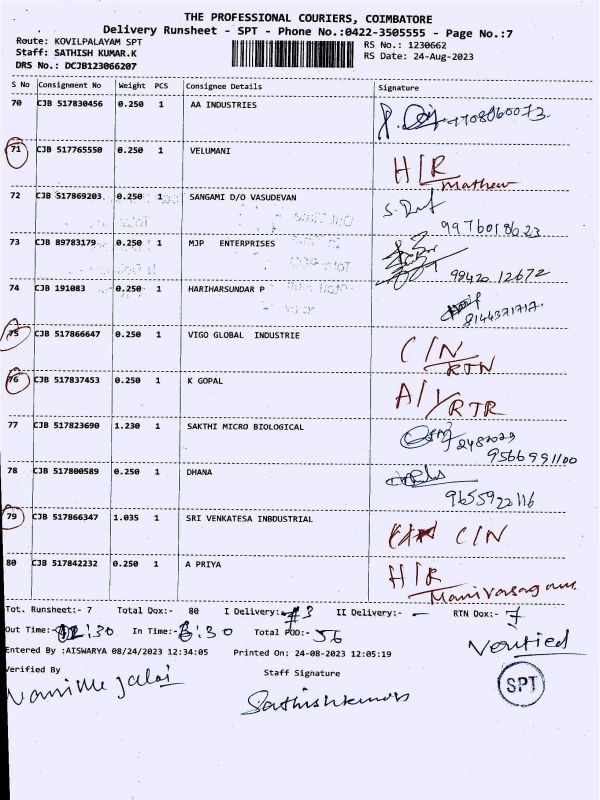 THE PROFESSIONAL COURIERS, COIMBATORE
Delivery Runsheet - SPT - Phone No.:0422-3505555 - Page No.:7
Route: KOVILPALAYAM SPT RS No.: 1230662
Staff: SATHISH KUMAR.K RS Date: 24-Aug-2023
DRS No.: DCJB123066207
S No Consignment No Weight PCS Consignee Details Signature
70 CJB 517830456 0.250 1 AA INDUSTRIES 7708060073
71 CJB 517765550 0.250 1 VELUMANI H/R
Mathew
72 CJB 517869203 0.250 1 SANGAMI D/O VASUDEVAN
9976018623
73 CJB 89783179 0.250 1 MJP ENTERPRISES
98420 12672
74 CJB 191083 0.250 1 HARIHARSUNDAR P
8144371717
75 CJB 517866647 0.250 1 VIGO GLOBAL INDUSTRIE C/N
RTN
76 CJB 517837453 0.250 1 K GOPAL A/
RTR
77 CJB 517823690 1.230 1 SAKTHI MICRO BIOLOGICAL
9566991100
78 CJB 517800589 0.250 1 DHANA
9655922116
79 CJB 517866347 1.035 1 SRI VENKATESA INBDUSTRIAL C/N
80 CJB 517842232 0.250 1 A PRIYA H/R
Manivasagam
Tot. Runsheet:- 7 Total Dox:- 80 I Delivery:- 73 II Delivery:- - RTN Dox:- 7
Out Time:- 12:30 In Time:- 6:30 Total POD:- 56
Verified
Entered By :AISWARYA 08/24/2023 12:34:05 Printed On: 24-08-2023 12:05:19
Verified By Staff Signature
SPT
Sathishkumar